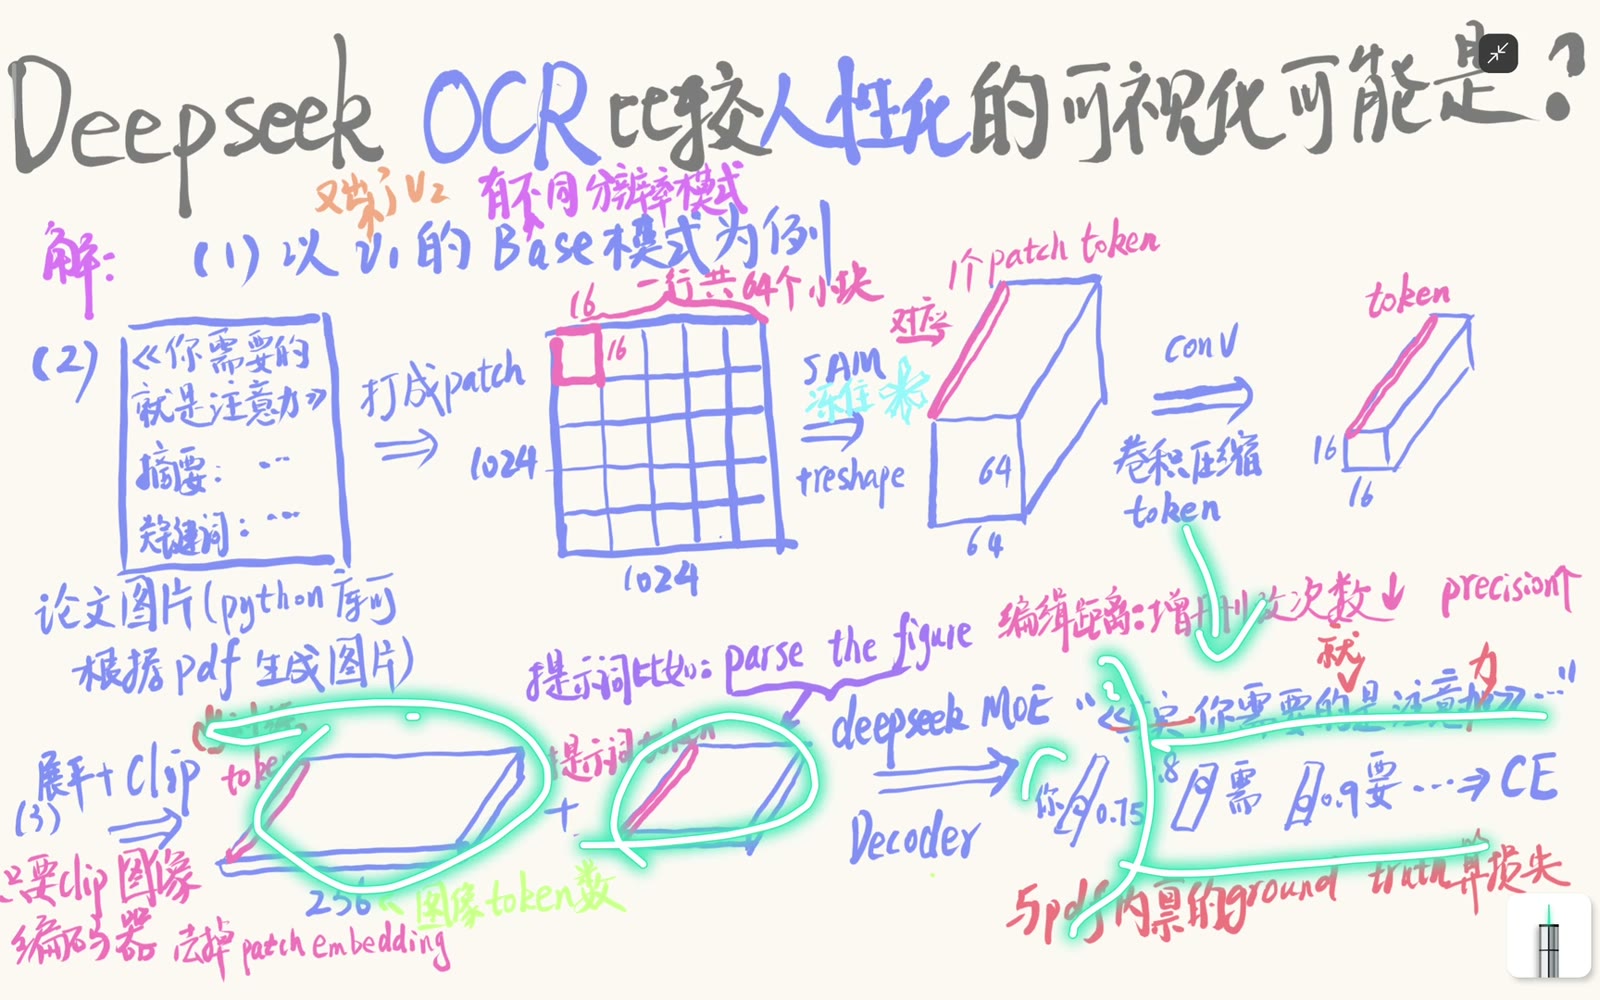 Deepseek OCR 比较人性化的可视化可能是?
又出了V2 有不同分辨率模式
解: (1) 以 V1 的 Base 模式为例
(2)
《你需要的
就是注意力》
摘要: …
关键词: …
论文图片(python库可
根据pdf生成图片)
打成patch
16 一行共64个小块
16
1024
1024
对应
1个patch token
SAM
冻住
+reshape
64
64
conv
卷积压缩
token
token
16
16
(3)
展平+Clip
token
只要clip图像
编码器 去掉patch embedding
256
图像token数
+
提示词比如: parse the figure
提示词token
deepseek MOE
Decoder
编辑距离:增 改次数↓ precision↑
就 力
你需要的是注意 》…"
你 0.75 .8 需 0.9 要 … CE
与pdf内禀的ground truth算损失